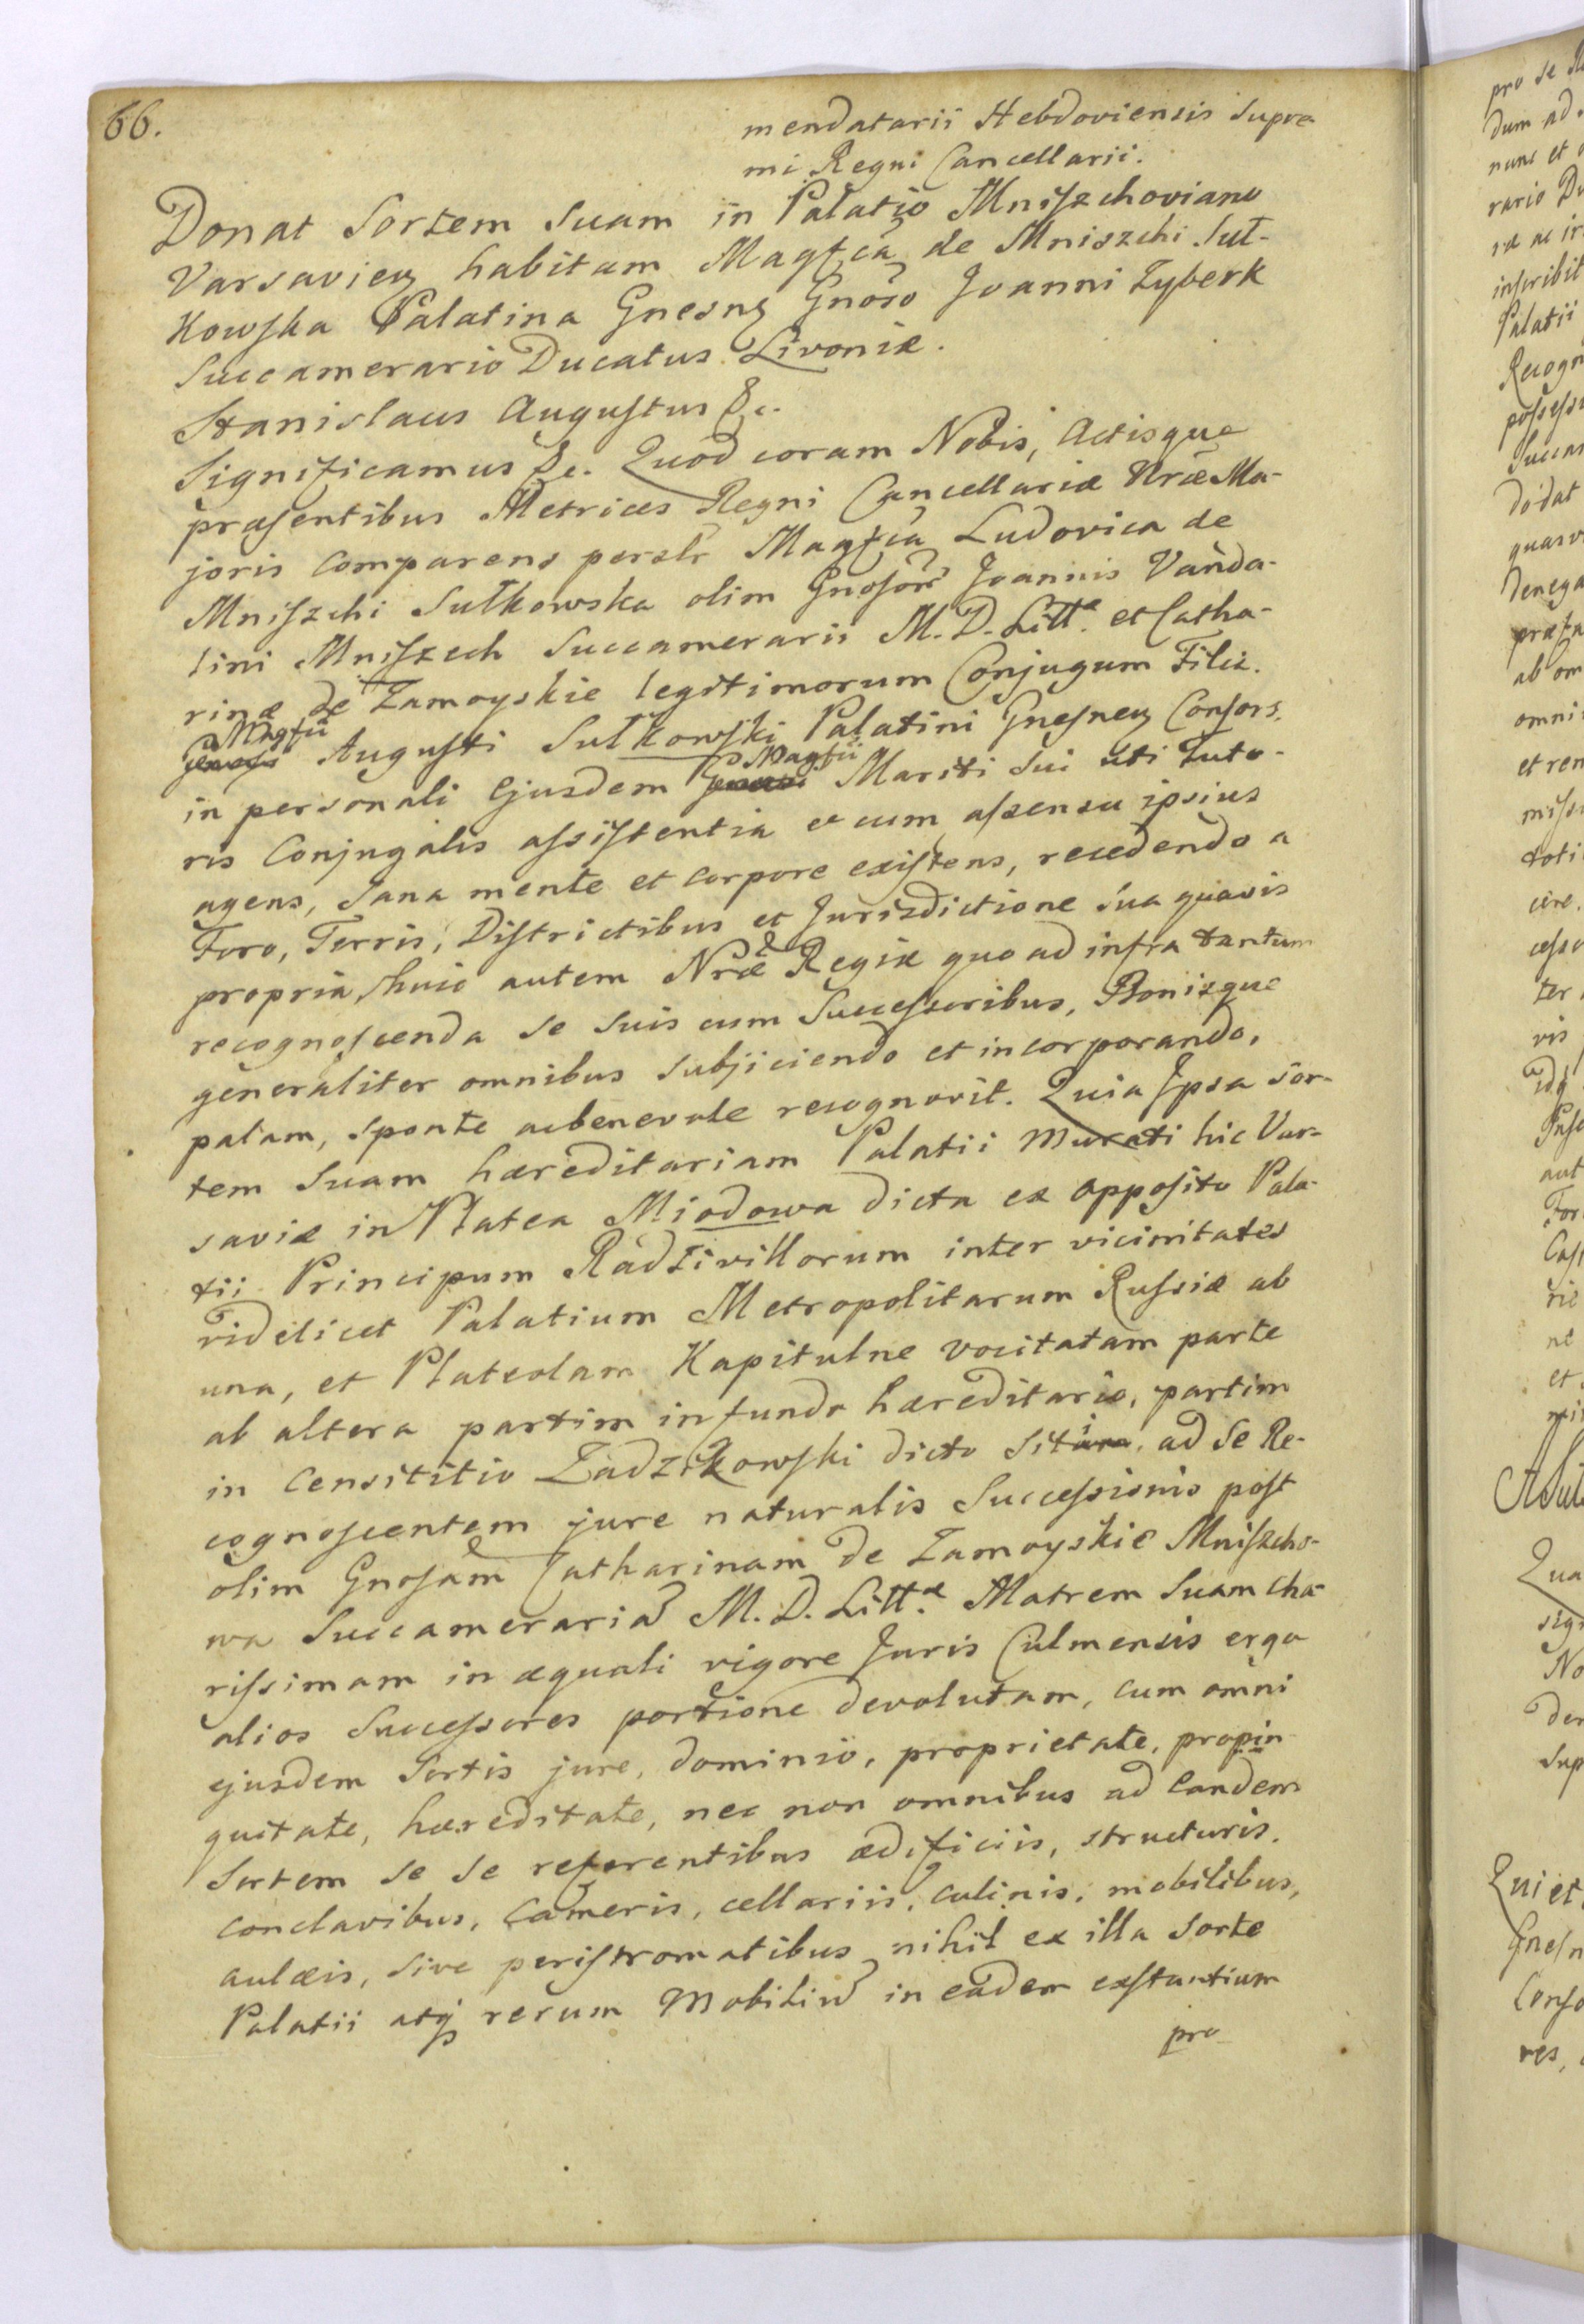 66.
mendatarii Hebdoviensis Supre-
mi Regni Cancellarii.
Donat Sortem Suam in Palatio Mniszchoviano
Varsavien habitam Magfca de Mniszchi Suł-
kowska Palatina Gnesn Gnoso Joanni Zyberk
Succamerario Ducatus Livoniæ.
Stanislaus Augustus &c.
Significamus &c. Quod coram Nobis, Actisque
præsentibus Metrices Regni Cancellariæ Nræ Ma-
joris comparens personlr Magfca Ludovica de
Mniszchi Sułkowska olim Gnosor Joannis Vanda-
lini Mniszech Succamerarii M. D. Littæ et Catha-
rinæ de Zamoyskie legitimorum Conjugum Filia.
Magfci Augusti Sułkowski Palatini Gnesnen Consors,
in personali Ejusdem Magfci Mariti Sui uti Tuto-
ris Conjugalis assistentia et cum assensu ipsius
agens, Sana mente et corpore existens, recedendo a
Foro, Terris, Districtibus et Jurisdictione sua quavis
propria, huic autem Nræ Regiæ quo ad infra tantum
recognoscenda se suis cum Successoribus, Bonisque
generaliter omnibus Subjiciendo et incorporando,
palam, sponte ac benevole recognovit. Quia Ipsa Sor-
tem Suam hæreditariam Palatii Murati hic Var-
saviæ in Platea Miodowa dicta ex opposito Pala-
tii Principum Radzivillorum inter vicinitates
videlicet Palatium Metropolitarum Russiæ ab
una, et Plateolam Kapitulne vocitatam parte
ab altera partim in fundo hæreditario, partim
in Censititio Zadzikowski dicto Siti, ad Se Re-
cognoscentem jure naturalis Successionis post
olim Gnosam Catharinam de Zamoyskie Mniszcho-
wa Succamerariā M. D. Littæ Matrem Suam cha-
rissimam in æquali vigore Juris Culmensis erga
alios Successores portione devolutam, cum omni
ejusdem Sortis jure, dominio, proprietate, propin-
quitate, hæreditate, nec non omnibus ad eandem
Sortem se se referentibus ædificiis, structuris,
conclavibus, cameris, cellariis, culinis, mobilibus,
aulæis, sive peristromatibus nihil ex illa Sorte
Palatii atq rerum Mobiliū in eadem exstantium
pro